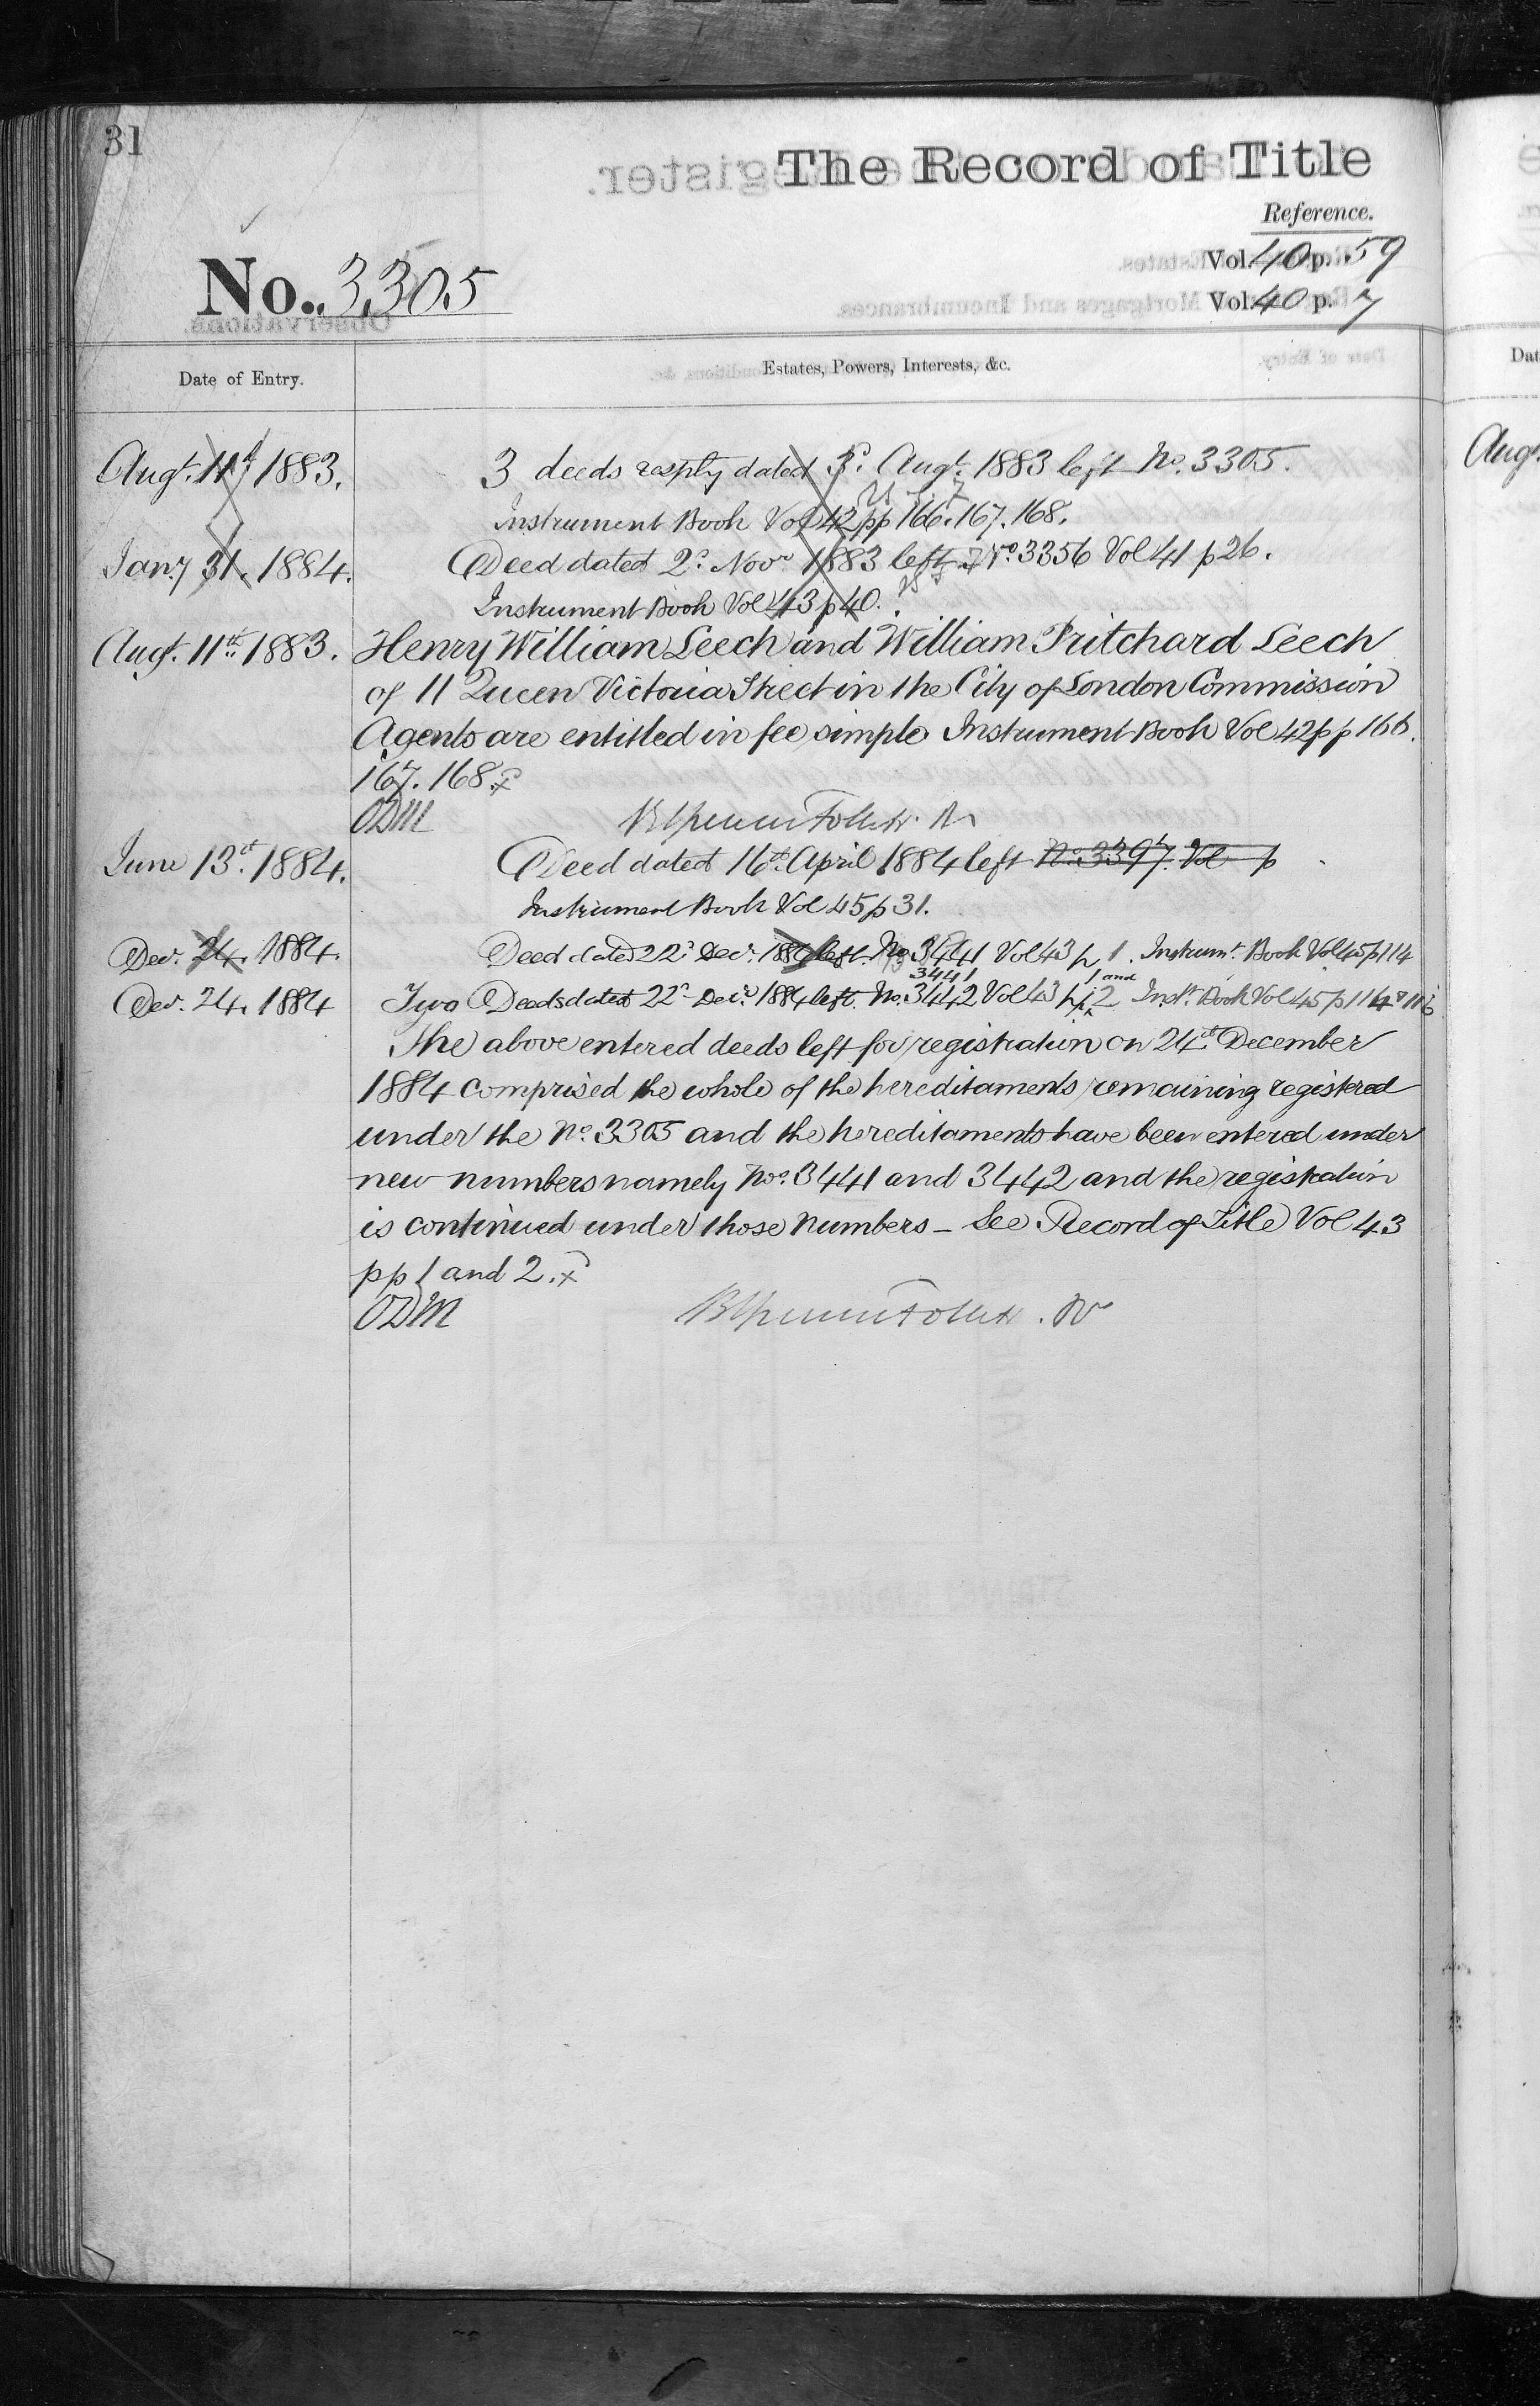 31
The Record of Title
Reference.
Vol. 40 p. 59
No. 3305
Vol. 40 p. 7
Date of Entry.
Estates, Powers, Interests, &c.
Augt. 11th 1883.
3 deeds resply dated 3d. Augt. 1883 left No. 3305.
Instrument Book Vol 42 pp 166. 167. 168.
Jany 31. 1884.
Deed dated 2d. Novr 1883 left No. 3356 Vol 41 p 26.
Instrument Book Vol 43 p 40.
Augt. 11th 1883.
Henry William Leech and William Pritchard Leech
of 11 Queen Victoria Street in the City of London Commission
Agents are entitled in fee simple Instrument Book Vol 42 pp 166.
167. 168.
ODM
June 13th. 1884.
Deed dated 16th. April 1884 left No. 3397. Vol p
Instrument Book Vol 45 p 31.
Decr. 24. 1884.
Deed dated 22d Decr. 1884 left. No 3441 Vol 43 p 1. Instrumt. Book Vol 45 p 114
3441
1 and
Decr. 24. 1884
Two Deeds dated 22d Decr. 1884 left. No. 3442 Vol 43 pp 2 Inst. Book Vol 45 p 114 & 116
The above entered deeds left for registration on 24th December
1884 comprised the whole of the hereditaments remaining registered
under the No. 3305 and the hereditaments have been entered under
new numbers namely Nos. 3441 and 3442 and the registration
is continued under those numbers – See Record of Title Vol 43
pp 1 and 2.
ODM
Dat
Augt.